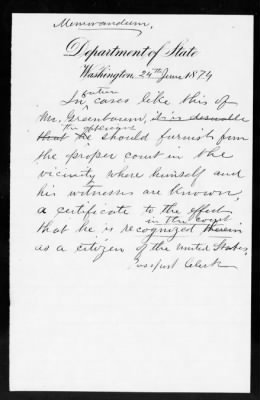 Memorandum.
Department of State
Washington, 24th June 1879
future
In cases like this of
Mr. Greenbaum, it is desirable
the applicant
that he should furnish from
the proper court in the
vicinity where himself and
his witnesses are known,
a certificate to the effect
in the court
that he is recognized therein
as a citizen of the United States.
Passport Clerk